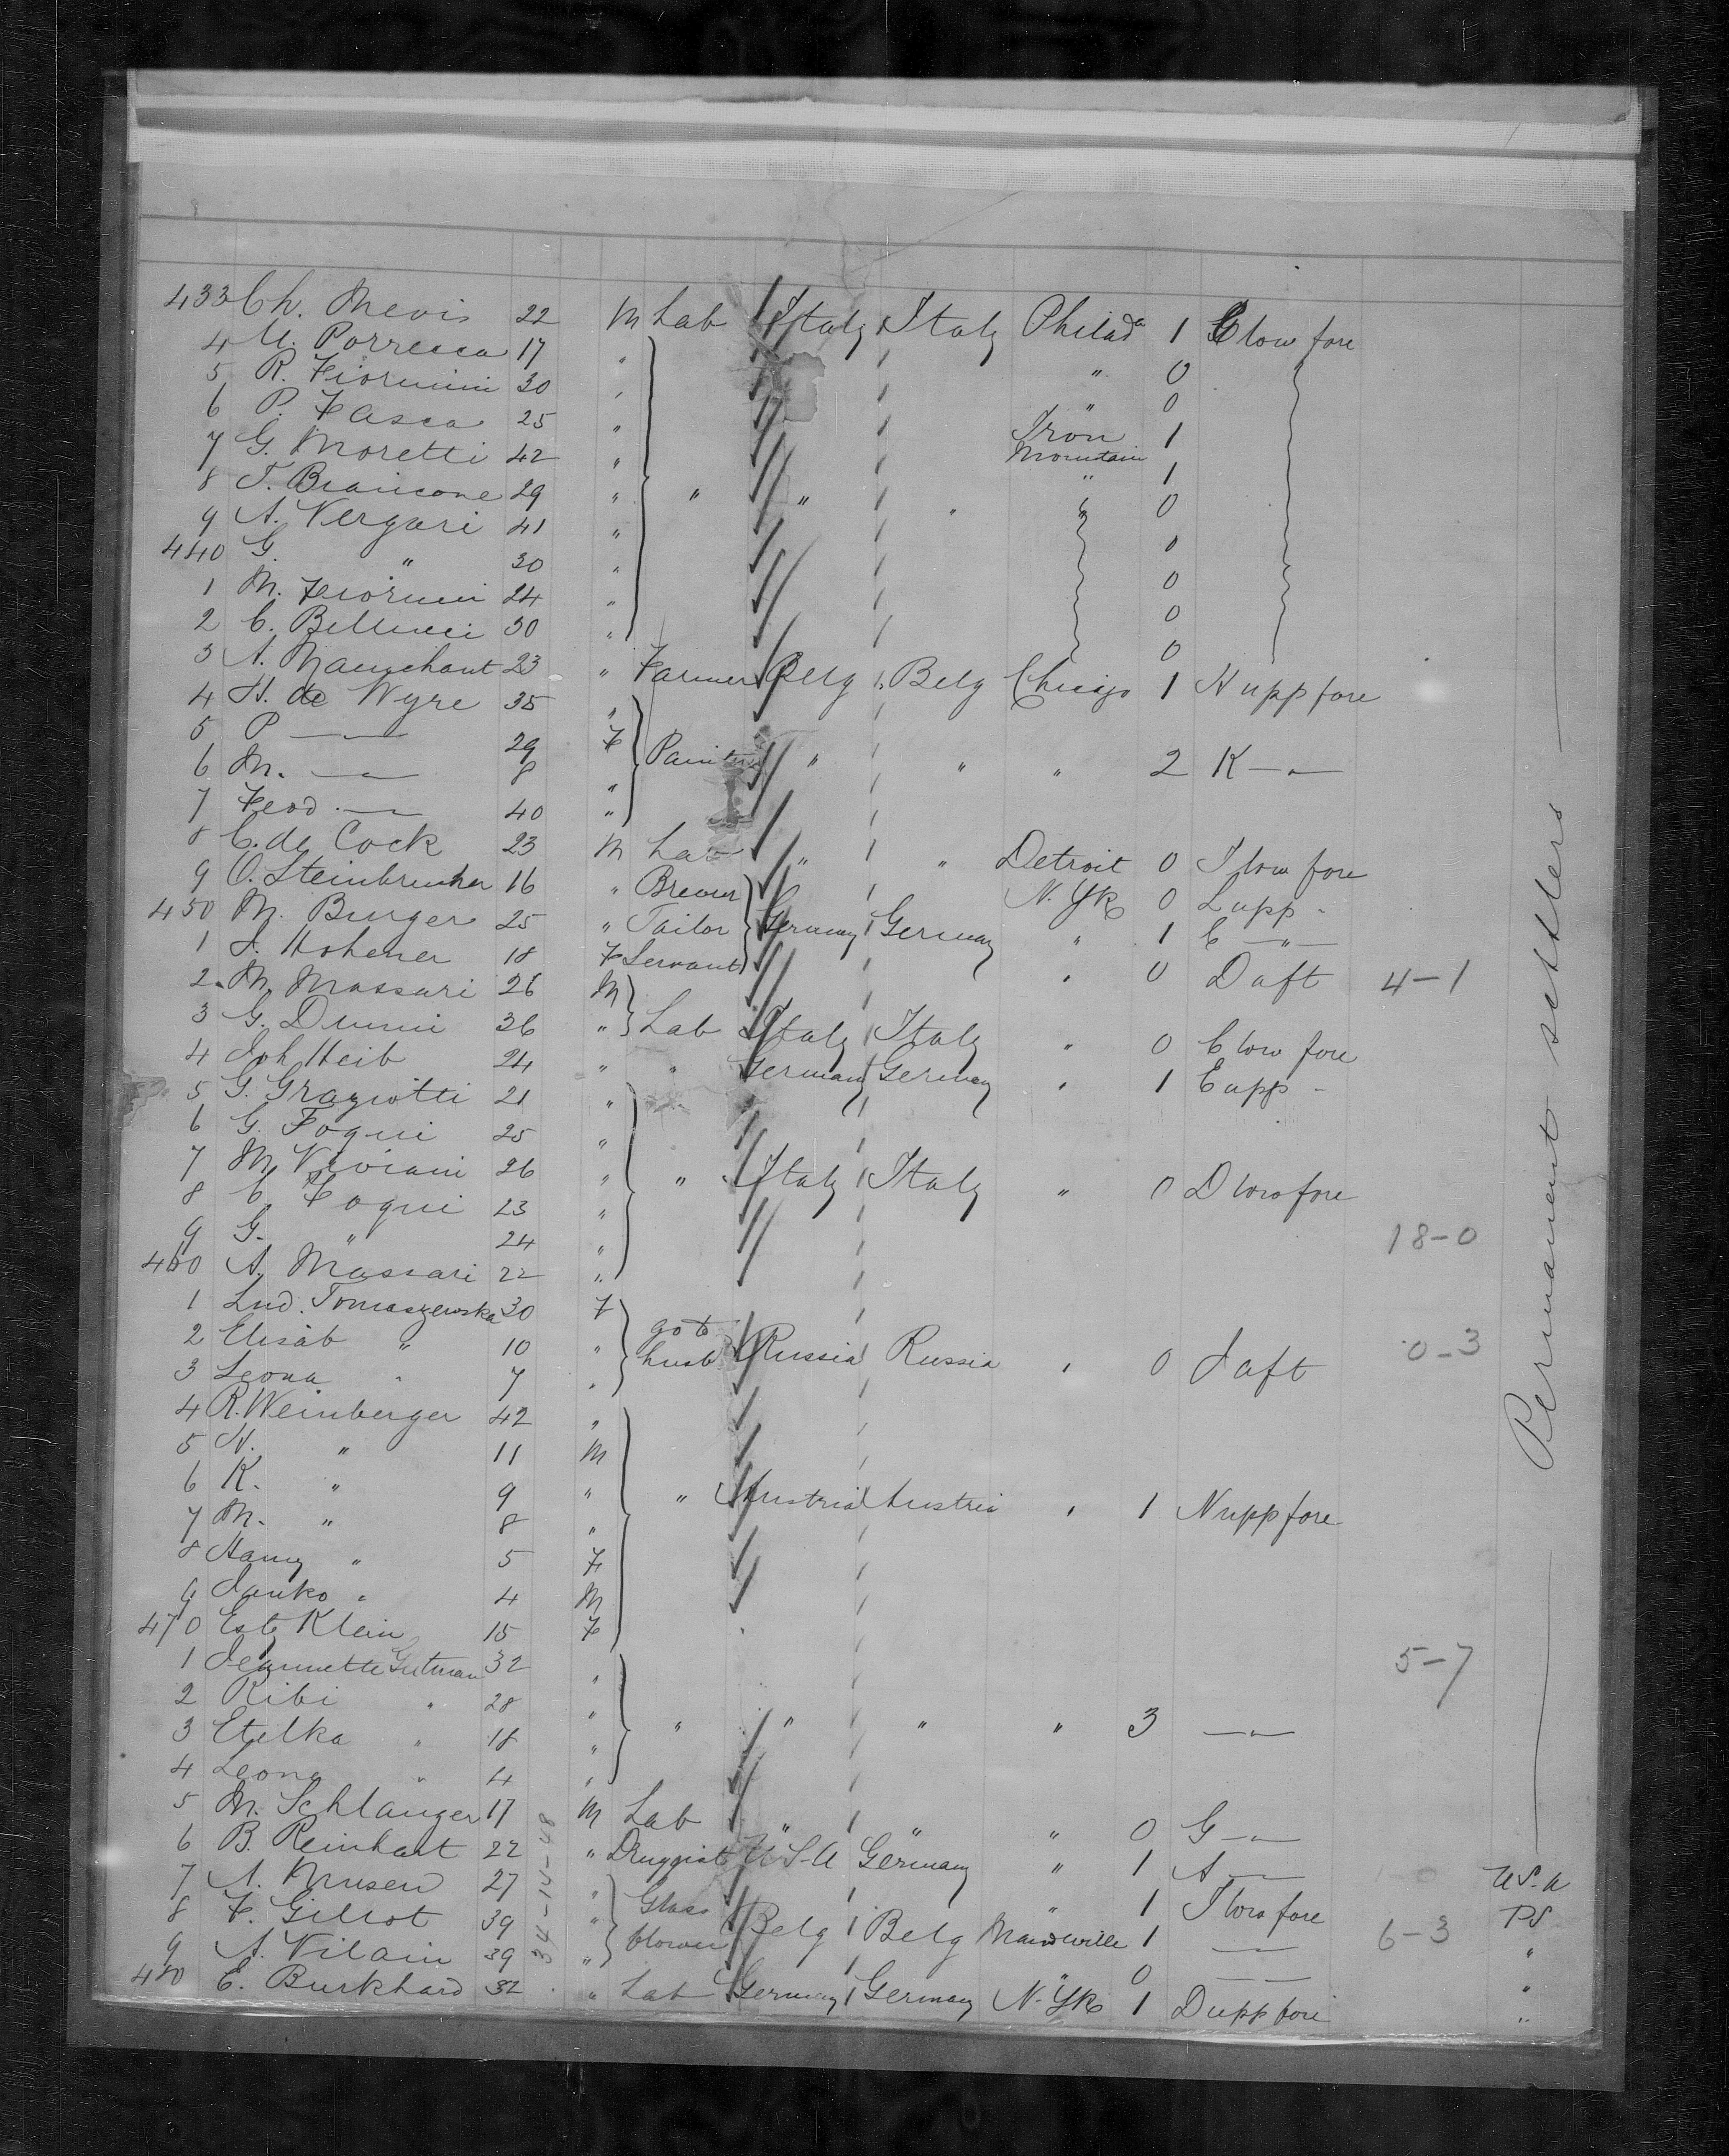 433 Ch. Mevis 22 M Lab Italy Italy Philada 1 C low fore
4 U. Porrecca 17 " " 0
5 R. Fiormini 30 " " 0
6 P. Fasca 25 " Iron Mountain 1
7 G. Moretti 42 " " 1
8 T. Brancone 29 " " " " " 0
9 A. Vergari 41 " 0
440 G. " 30 " 0
1 M. Fiormi 24 " 0
2 C. Bellucci 30 " 0
3 A. Mauchant 23 " Farmer Belg Belg Chicago 1 N upp fore
4 H. de Wyre 35 "
5 P —"— 29 F Painter " " " 2 K —"—
6 M. —"— 8 "
7 Feod. —"— 40 "
8 C. de Cock 23 M Lab " " Detroit 0 I low fore
9 O. Steinbrenker 16 " Brewer N. Yk 0 L upp "
450 M. Burger 25 " Tailor Germany Germany " 1 C —"—
1 J. Hohener 18 F Servant " 0 D aft 4-1
2 M. Massari 26 M
3 G. Dumi 36 " Lab Italy Italy " 0 C low fore
4 Joh Heib 24 " " Germany Germany " 1 E upp "
5 G. Graziotti 21 "
6 G. Foqui 25 "
7 M. Viviani 26 " " Italy Italy " 0 D low fore
8 C. Foqui 23 "
9 G. " 24 " 18-0
460 A. Massari 22 "
1 Lud. Tomaszewska 30 F
2 Elisab " 10 " go to husb Russia Russia " 0 J aft 0-3
3 Leona " 7 "
4 R. Weinberger 42 "
5 N. " 11 M
6 K. " 9 " " Austria Austria " 1 N upp fore
7 M. " 8 "
8 Hany " 5 F
9 Janko " 4 M
470 Est. Klein 15 F
1 Jeannette Gutman 32 " 5-7
2 Ribi " 28 "
3 Etelka " 18 " " " " " 3 —"—
4 Leona " 4 "
5 M. Schlanger 17 M Lab " " " 0 G —"—
6 B. Reinhart 22 " Druggist U S-A Germany " 1 A —"— US-A
7 A. Musen 27 " Glass blower " 1 I low fore PS
8 F. Gillot 39 " Belg Belg 1 —"— 6-3 "
9 A. Vilain 39 " " 0 —"— "
480 E. Burkhard 32 " Lab Germany Germany N. Yk 1 D upp fore "
34-14-48
Permanent settlers